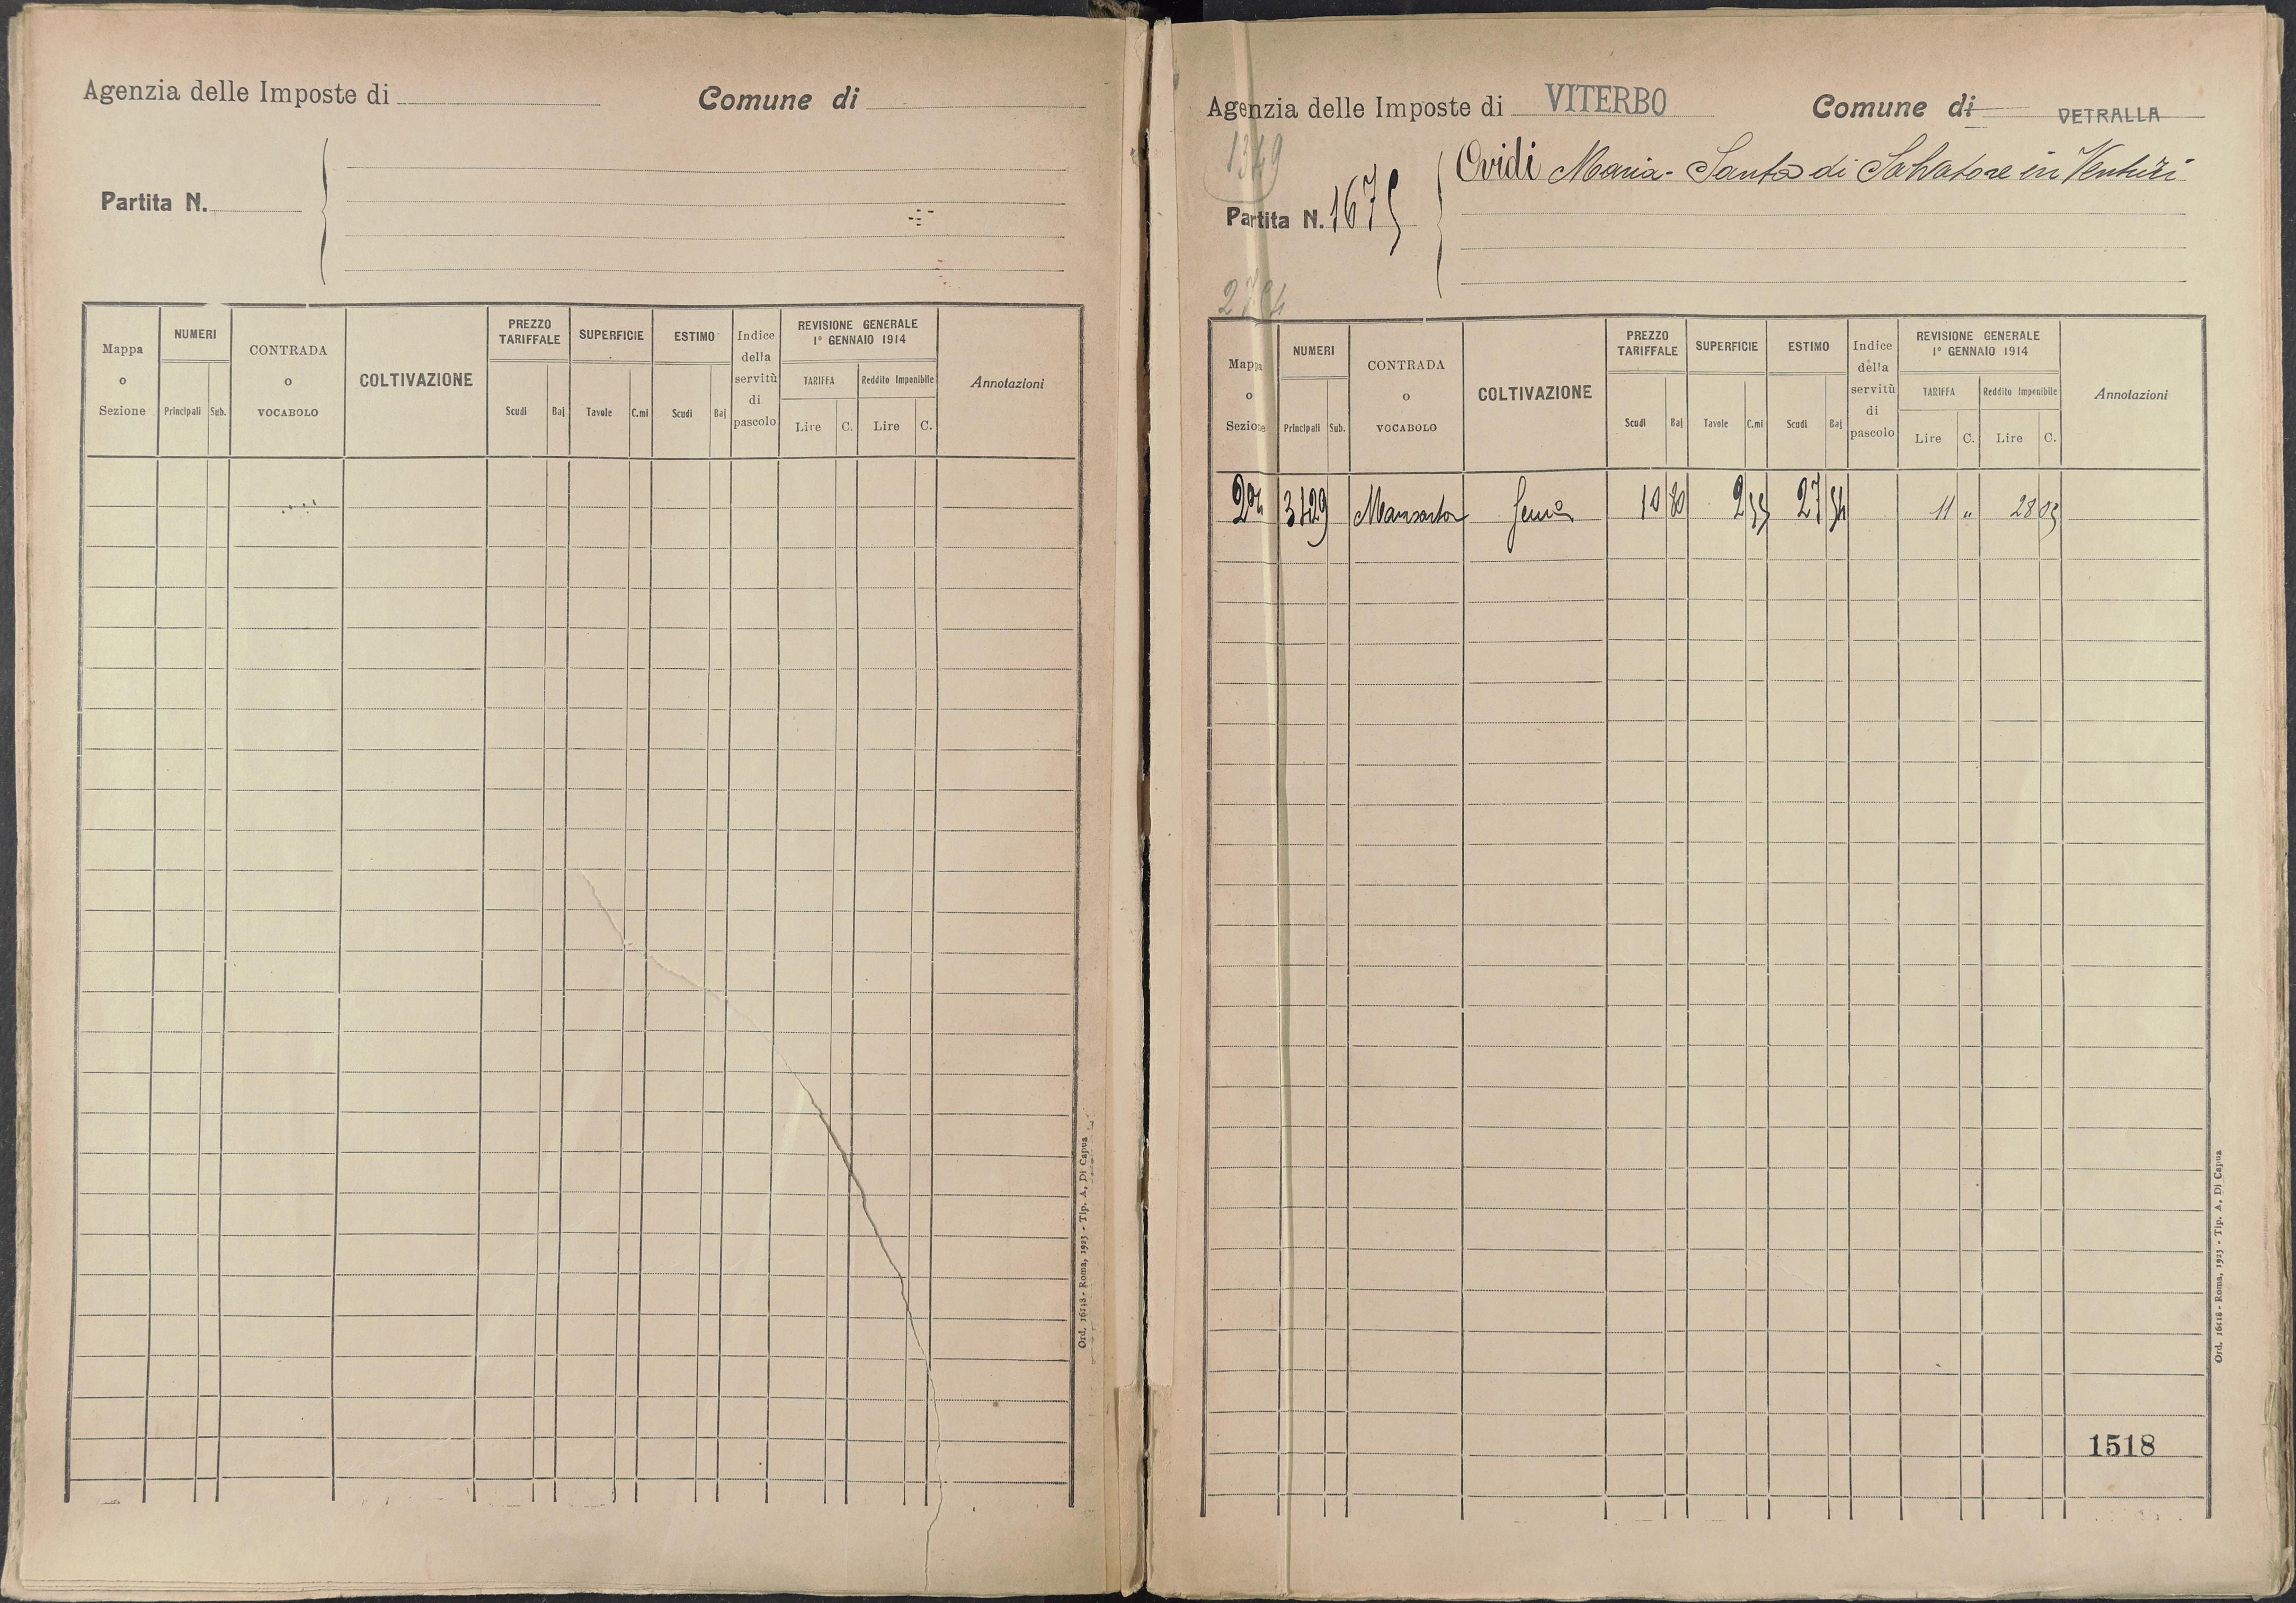 Agenzia delle Imposte di
Comune di
Partita N.
Mappa o Sezione
NUMERI
Principali Sub.
CONTRADA o VOCABOLO
COLTIVAZIONE
PREZZO TARIFFALE
Scudi Baj
SUPERFICIE
Tavole C.mi
ESTIMO
Scudi Baj
Indice della servitù di pascolo
REVISIONE GENERALE
1° GENNAIO 1914
TARIFFA
Lire C.
Reddito Imponibile
Lire C.
Annotazioni
Ord. 16118 - Roma, 1923 - Tip. A. Di Capua
Agenzia delle Imposte di VITERBO
Comune di VETRALLA
1349
Partita N. 1675
Ovidi Maria-Santa di Salvatore in Venturi
Mappa o Sezione
NUMERI
Principali Sub.
CONTRADA o VOCABOLO
COLTIVAZIONE
PREZZO TARIFFALE
Scudi Baj
SUPERFICIE
Tavole C.mi
ESTIMO
Scudi Baj
Indice della servitù di pascolo
REVISIONE GENERALE
1° GENNAIO 1914
TARIFFA
Lire C.
Reddito Imponibile
Lire C.
Annotazioni
2a 3429 10 80 2 55 27 54 11 " 28 05
1518
Ord. 16118 - Roma, 1923 - Tip. A. Di Capua